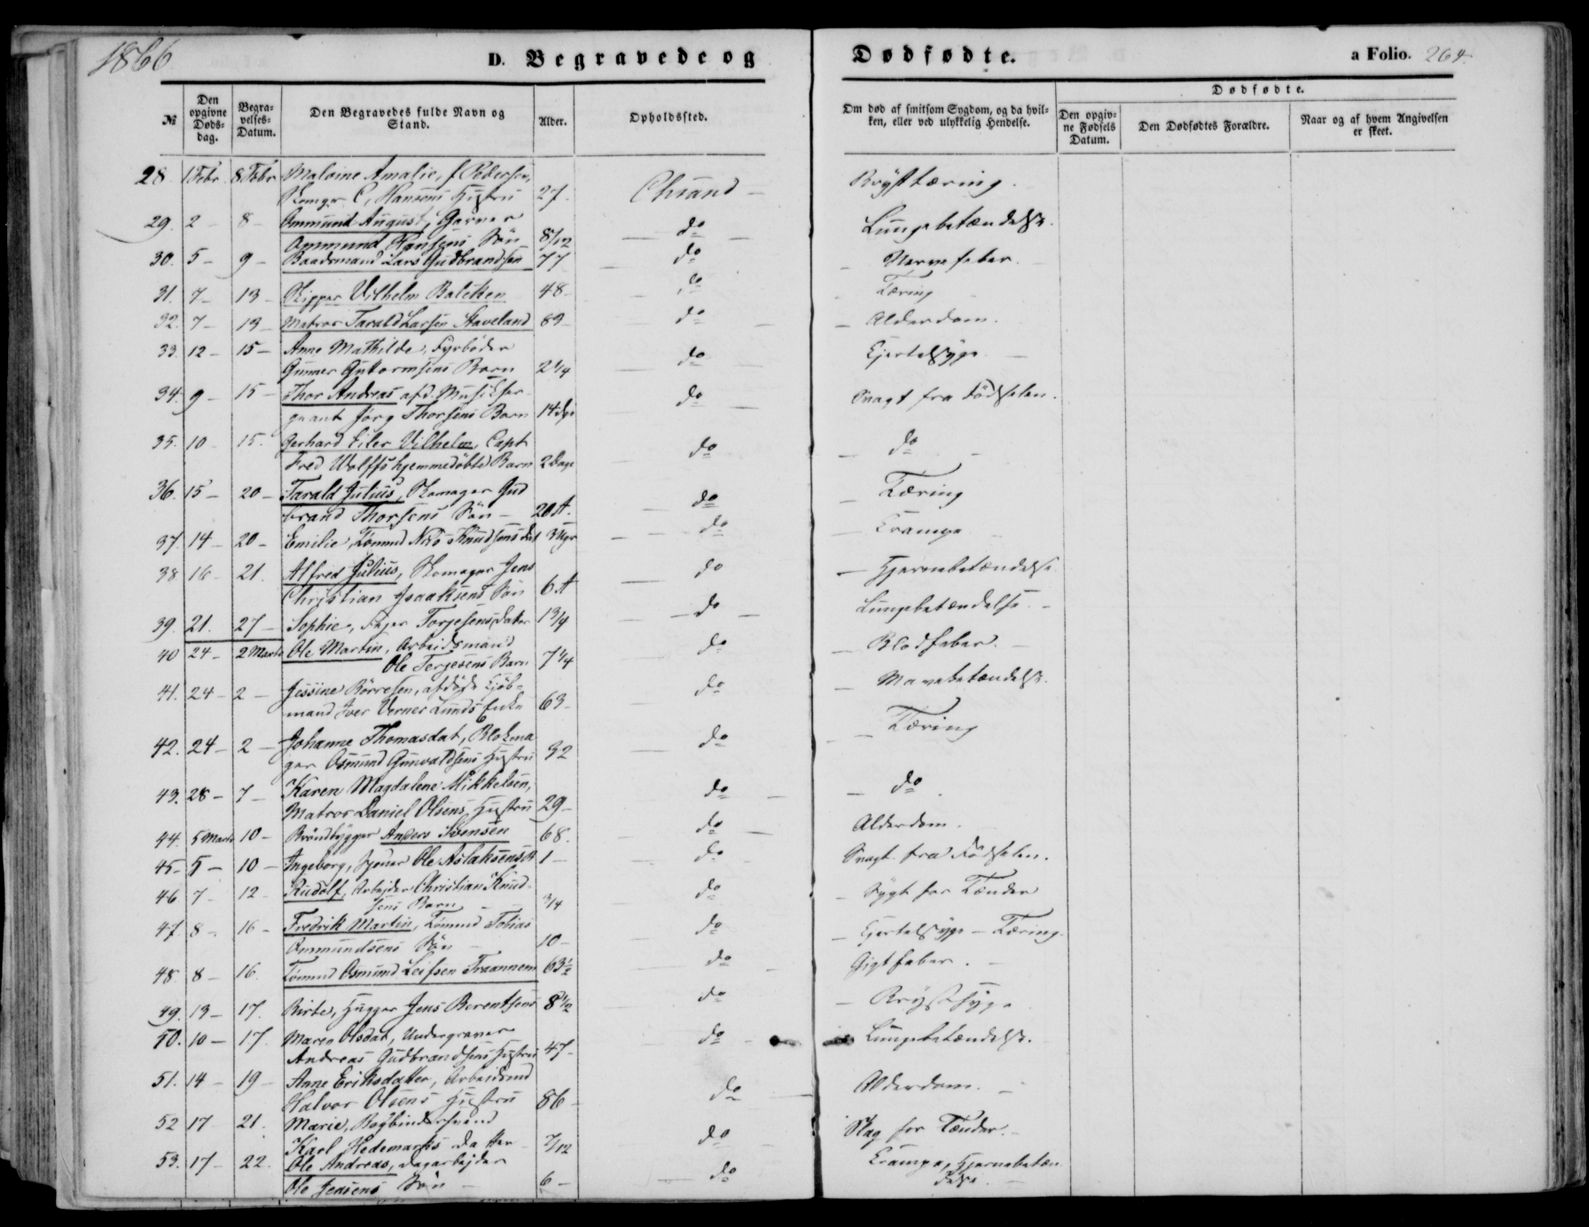 1866
D. Begravede og Dødfødte.
a Folio. 264
№
Den opgivne Døds-dag.
Begra-velses-Datum.
Den Begravedes fulde Navn og Stand.
Alder.
Opholdssted.
Om død af smitsom Sygdom, og da hvil-ken, eller ved ulykkelig Hendelse.
Dødfødte.
Den opgiv-ne Fødsels Datum.
Den Dødfødtes Forældre.
Naar og af hvem Angivelsen er skeet.
28 1 Febr 8 Febr Malvine Amalie, f Pedersen,
C, Hansens Hustru 27. Chsand - Brysttæring.
29. 2 - 8 - Ommund August, Garver
Ommund Hansens Søn 8/12 do Lungebetændelse.
30. 5 - 9 - Baadsmand Lars Gudbrandsen 77 do Nervefeber.
31. 7 - 13 - Skipper Vilhelm Balcken 48 - do Tæring
32. 7 - 13 - Matros Tarald Larsen Staveland 89 - do - Alderdom.
33. 12 - 15 - Anne Mathilde, Fyrbøder
Gunner Guttormsens Barn 2 1/4 do Kjertelsyge -
34. 9 - 15 - Thor Andreas afd. Musikser-
geant Jørg Thorsens Barn 14 dge do Svagt fra Fødselen.
35. 10 15. Gerhard Eiler Vilhelm, Capt
Fred Wolffs hjemmedøbte Barn 2 Dage do - do
36. 15 - 20 - Tarald Julius, Skomager Gud
brand Thorsens Søn - 20 A. do - Tæring
37. 14 - 20 - Emilie, Tømmd Nils Knudsens dat 3 Uger do Krampe
38. 16 - 21. Alfred Julius, Skomager Jens
Christian Isaaksens Søn 6 A do - Hjernebetændelse
39. 21. 27 - Sophie, Torjesens Datter 1 3/4 do Lungebetændelse. -
40 24 - 2 Marts Ole Martin, Arbeidsmand
Ole Terjesens Barn 7 1/4 do - Blodfeber. -
41. 24 - 2 - Jessine Børresen, afdøde Kjøb-
mand Iver Verner Lunds Enke 63 - do - Mavebetændelse.
42. 24 - 2 - Johanne Thomasdat, Blokma
ger Osmund Gunvaldsens Hustru 32 do - Tæring
43. 28 - 7 - Karen Magdalene Mikkelsen,
Matros Daniel Olsens, Hustru 29 - do - do.
44. 5 Marts 10 - Brøndbygger Anders Svensen 68. do Alderdom.
45 - 5 - 10 - Ingeborg, Ole Aslaksens D 1 - do Svagt fra Fødselen.
46 7 - 12 - Rudolf, Arbejder Christian Knud-
sens Barn - 3/4 do - Sygt for Tænder
47. 8 - 16 - Fredrik Martin, Tømmd Tobias
Ommundsens Søn - 10 - do - Kjertelsyge - Tæring.
48. 8 - 16. Tømmd Osmund Leifsen Traannem 63 1/2 do Gigtfeber. -
49. 13 - 17. Birte, Hugger Jens Berentsens 8 1/2 do - Brystsyge
50. 10 - 17. Maren Olsdat, Undergraver
Andreas Gudbrandsens Hustru 47 - do - Lungebetændelse.
51. 14 - 19 - Anne Eriksdatter, Arbeidsmd
Halvor Olsens Hustru 86 - do - Alderdom. -
52 17 - 21. Marie, Bogbindersvend
Karl Hedemarks Datter 7/12 do Slag for Tænder. -
53. 17 - 22. Ole Andreas, Dagarbejder
Ole Jensens Søn - 6 - do Krampe, Hjernebetæn
delse. -